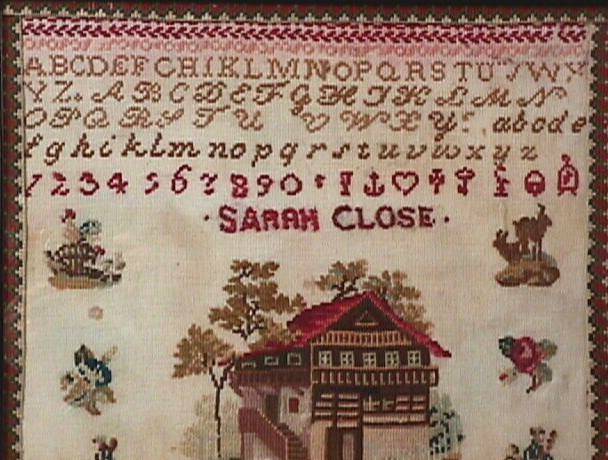 ABCDEFGHIKLMNOPQRSTUVWX
YZ. ABCDEFGHIKLMN
OPQRSTU VWXYZ abcde
fghiklmnopqrstuvwxyz
1234567890
·SARAH CLOSE·